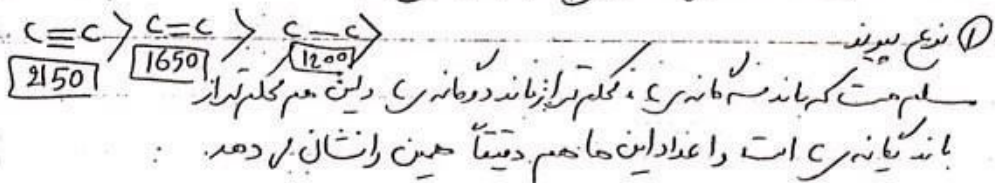 ① نوع پیوند C≡C > C=C > C—C >
2150 1650 1200
مسلم است که باند سه گانه ی C ، محکم تر از باند دوگانه ی C و این هم محکم تر از
باند یگانه ی C است و اعداد این ها هم دقیقاً همین را نشان می دهد.